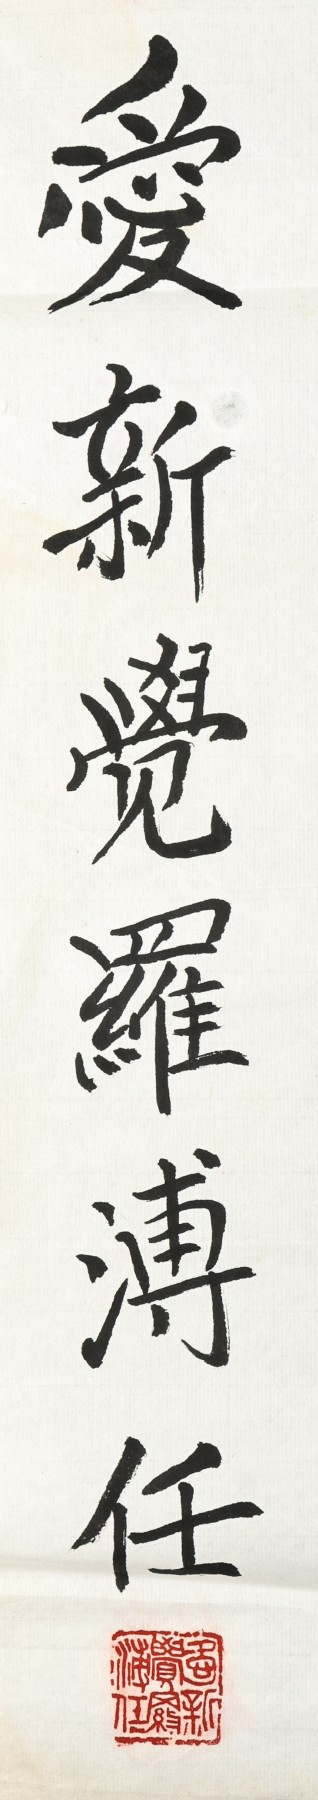 愛新覺羅溥任
愛新
覺羅
溥任